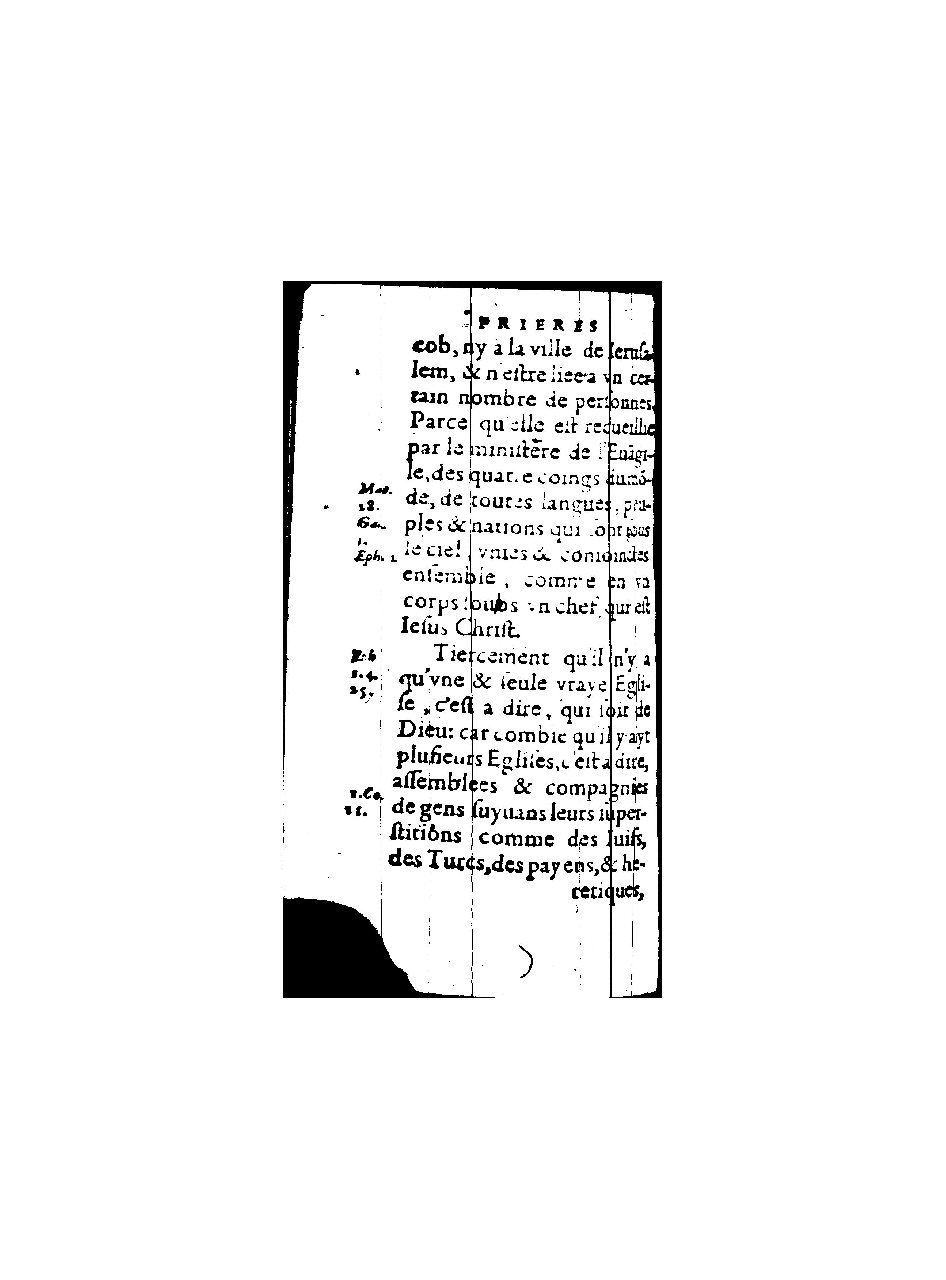 PRIERES
cob, ny a la ville de Ierusa-
lem, & n'estre liee a vn cer-
tain nombre de personnes.
Parce qu'elle est recueillie
par le ministere de l'Euāgi-
le, des quatre coings du mō-
de, de toutes langues, peu-
ples & nations qui sont sous
le ciel, vnies & conioinctes
ensemble, comme en vn
corps soubs vn chef, qui est
Iesus Christ.
Tiercement qu'il n'y a
qu'vne & seule vraye Egli-
se, c'est a dire, qui soit de
Dieu: car combiē qu'il y ayt
plusieurs Eglises, c'est a dire,
assemblees & compagnies
de gens suyuans leurs super-
stitiōns comme des Iuifs,
des Turcs, des payens, & he-
retiques,
18.
Eph. 1
25.
1. Co.